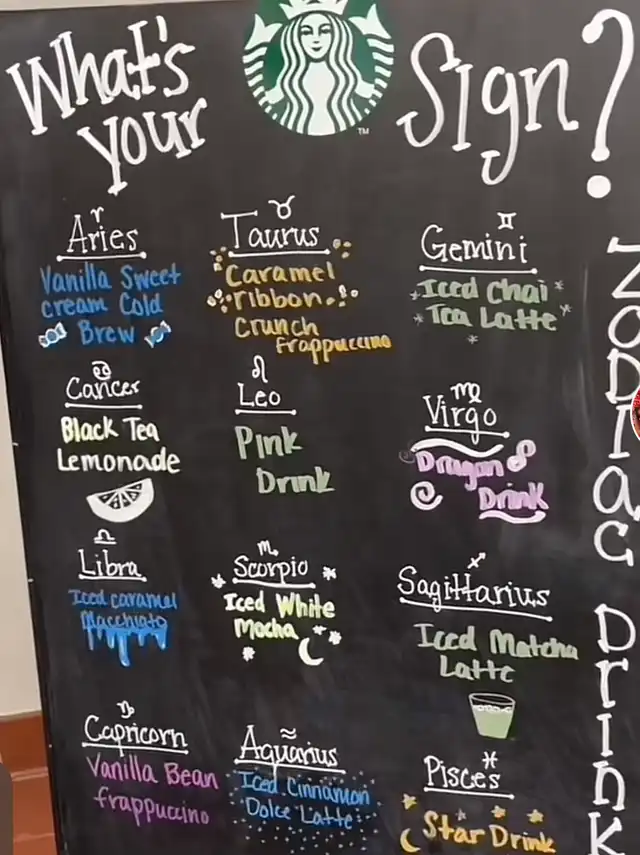 What's
your
Sign?
TM
Aries
Vanilla Sweet
cream Cold
Brew
Taurus
Caramel
ribbon
Crunch
frappuccino
Gemini
Iced Chai
Tea Latte
Cancer
Black Tea
Lemonade
Leo
Pink
Drink
Virgo
Dragon
Drink
Libra
Iced caramel
Macchiato
Scorpio
Iced White
Mocha
Sagittarius
Iced Matcha
Latte
Capricorn
Vanilla Bean
frappuccino
Aquarius
Iced Cinnamon
Dolce Latte
Pisces
Star Drink
ZoDIac DrInk